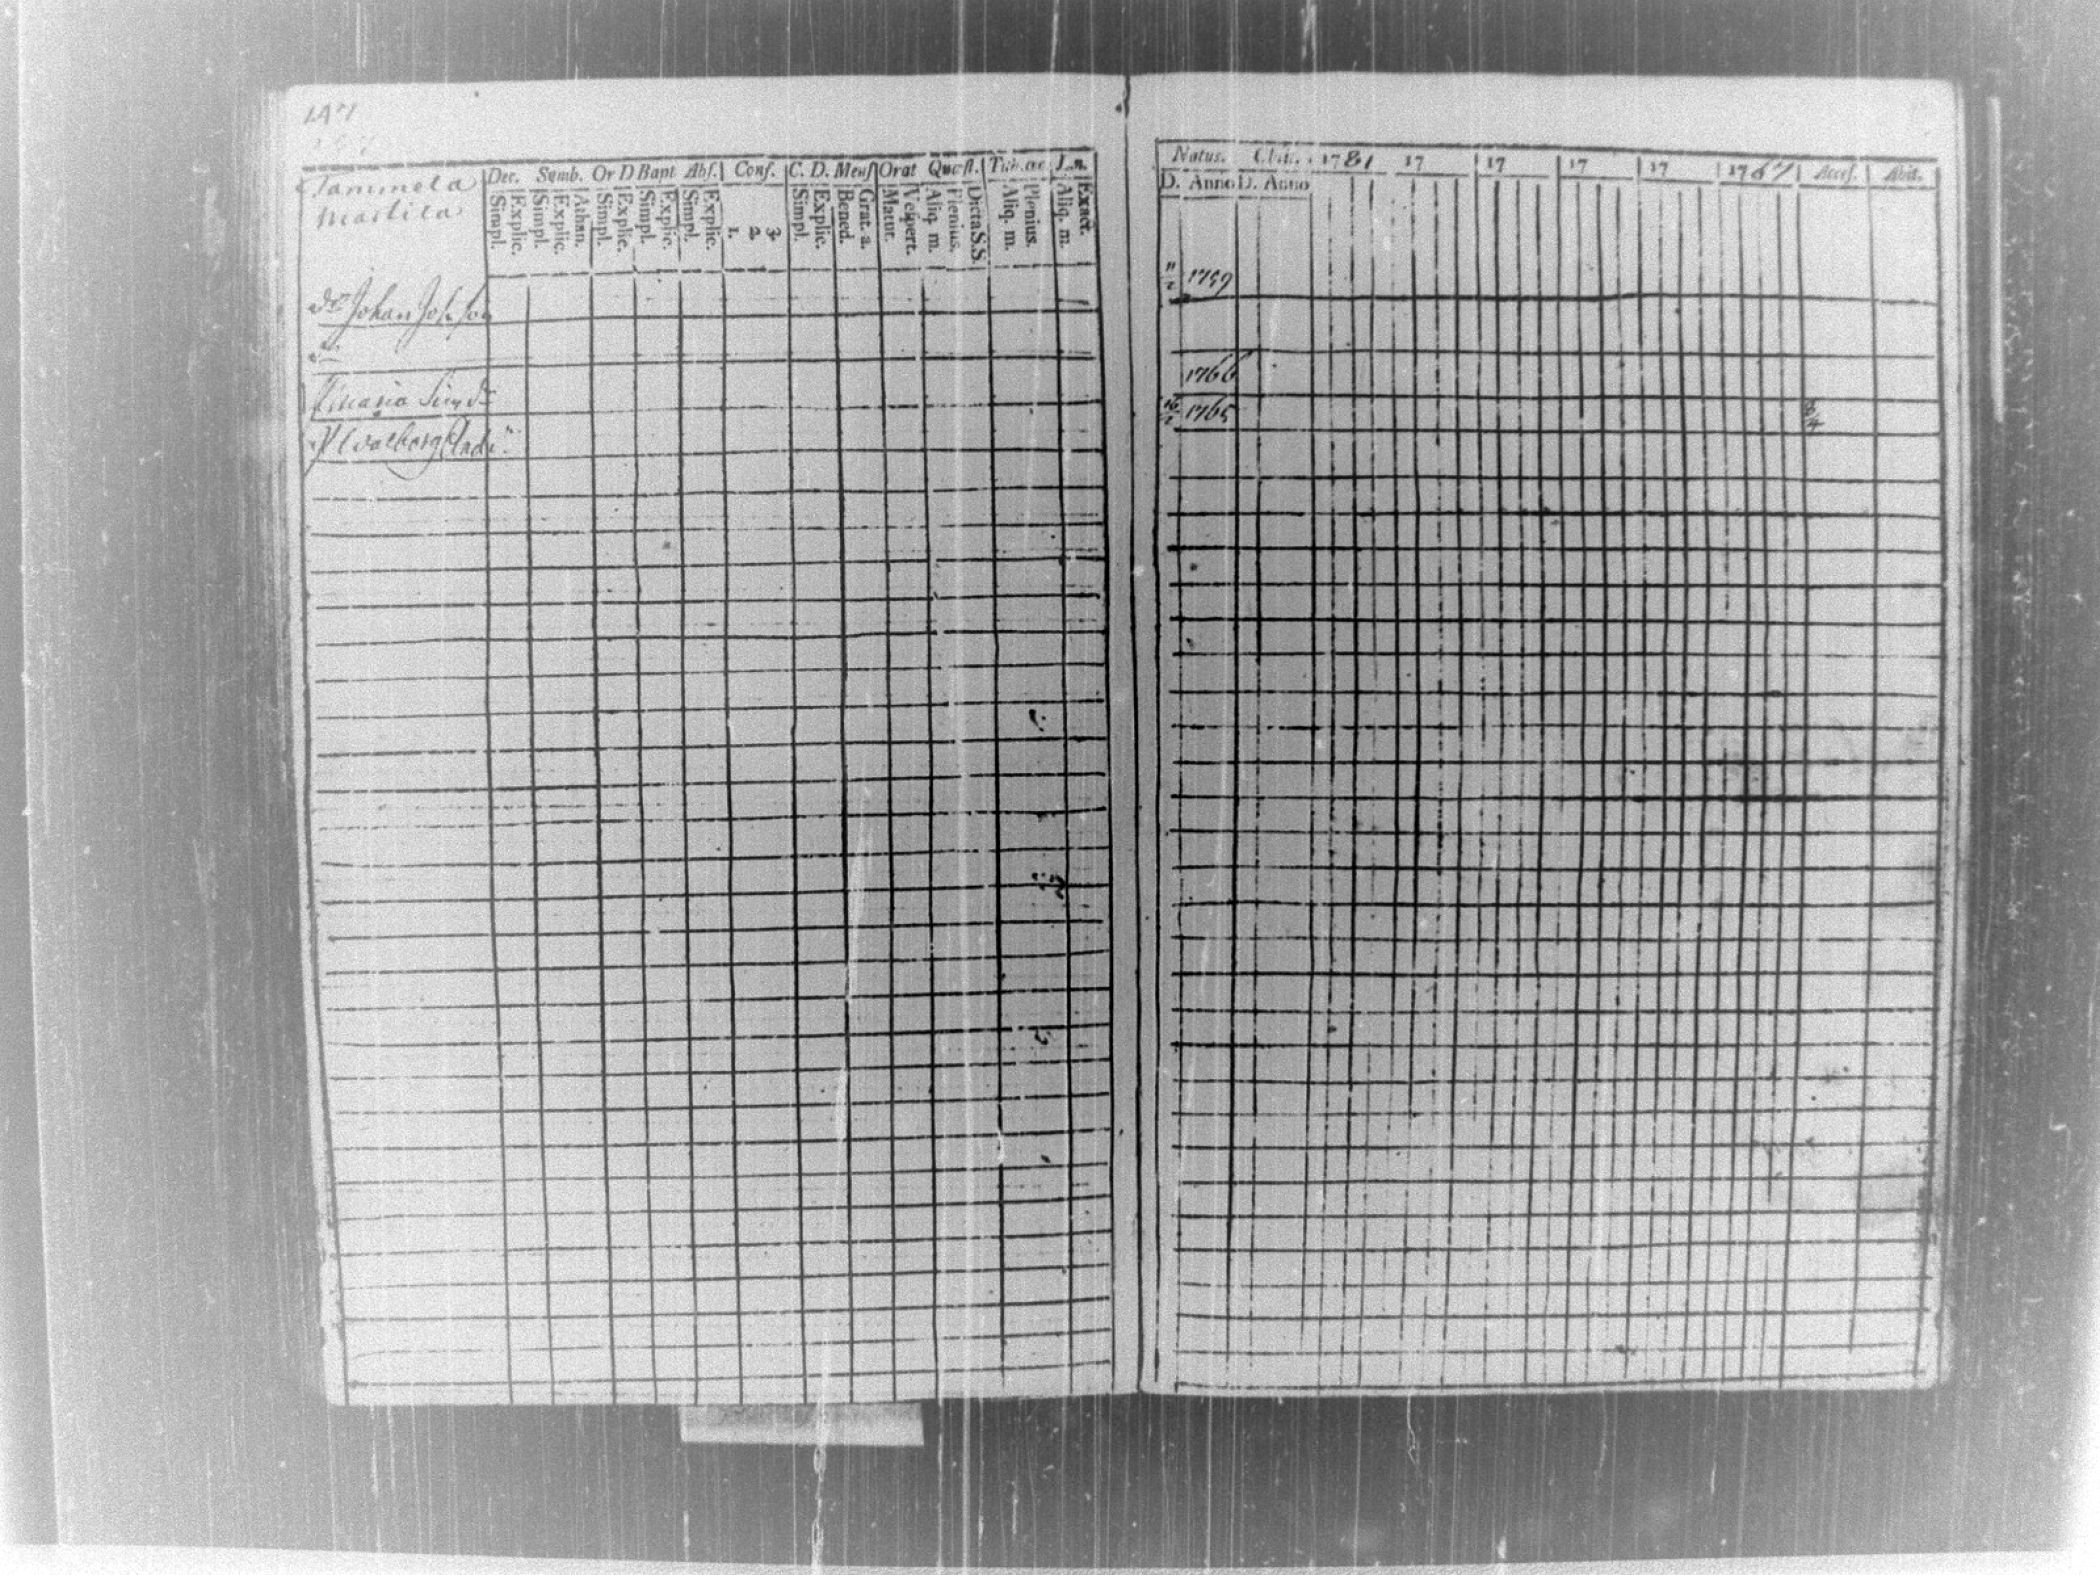 147
Tammela
Martila
Dec. Symb. Or D Bapt Abs. Conf. C. D. Mens Orat Quæst.
Simpl. Explic. Simpl. Explic. Athan. Simpl. Explic. Simpl. Explic. Simpl. Explic. 1. 2. 3. Simpl. Explic. Bened. Grat. a. Matut. Vespert. Aliq. m. Plenius. Dicta S.S. Aliq. m. Plenius. Aliq. m. Exact.
Johan
Maria
Walborg And
Natus. Obit. 1781 17 17 17 17 1787 Access. Abit.
D. Anno D. Anno
1759
1766
1765